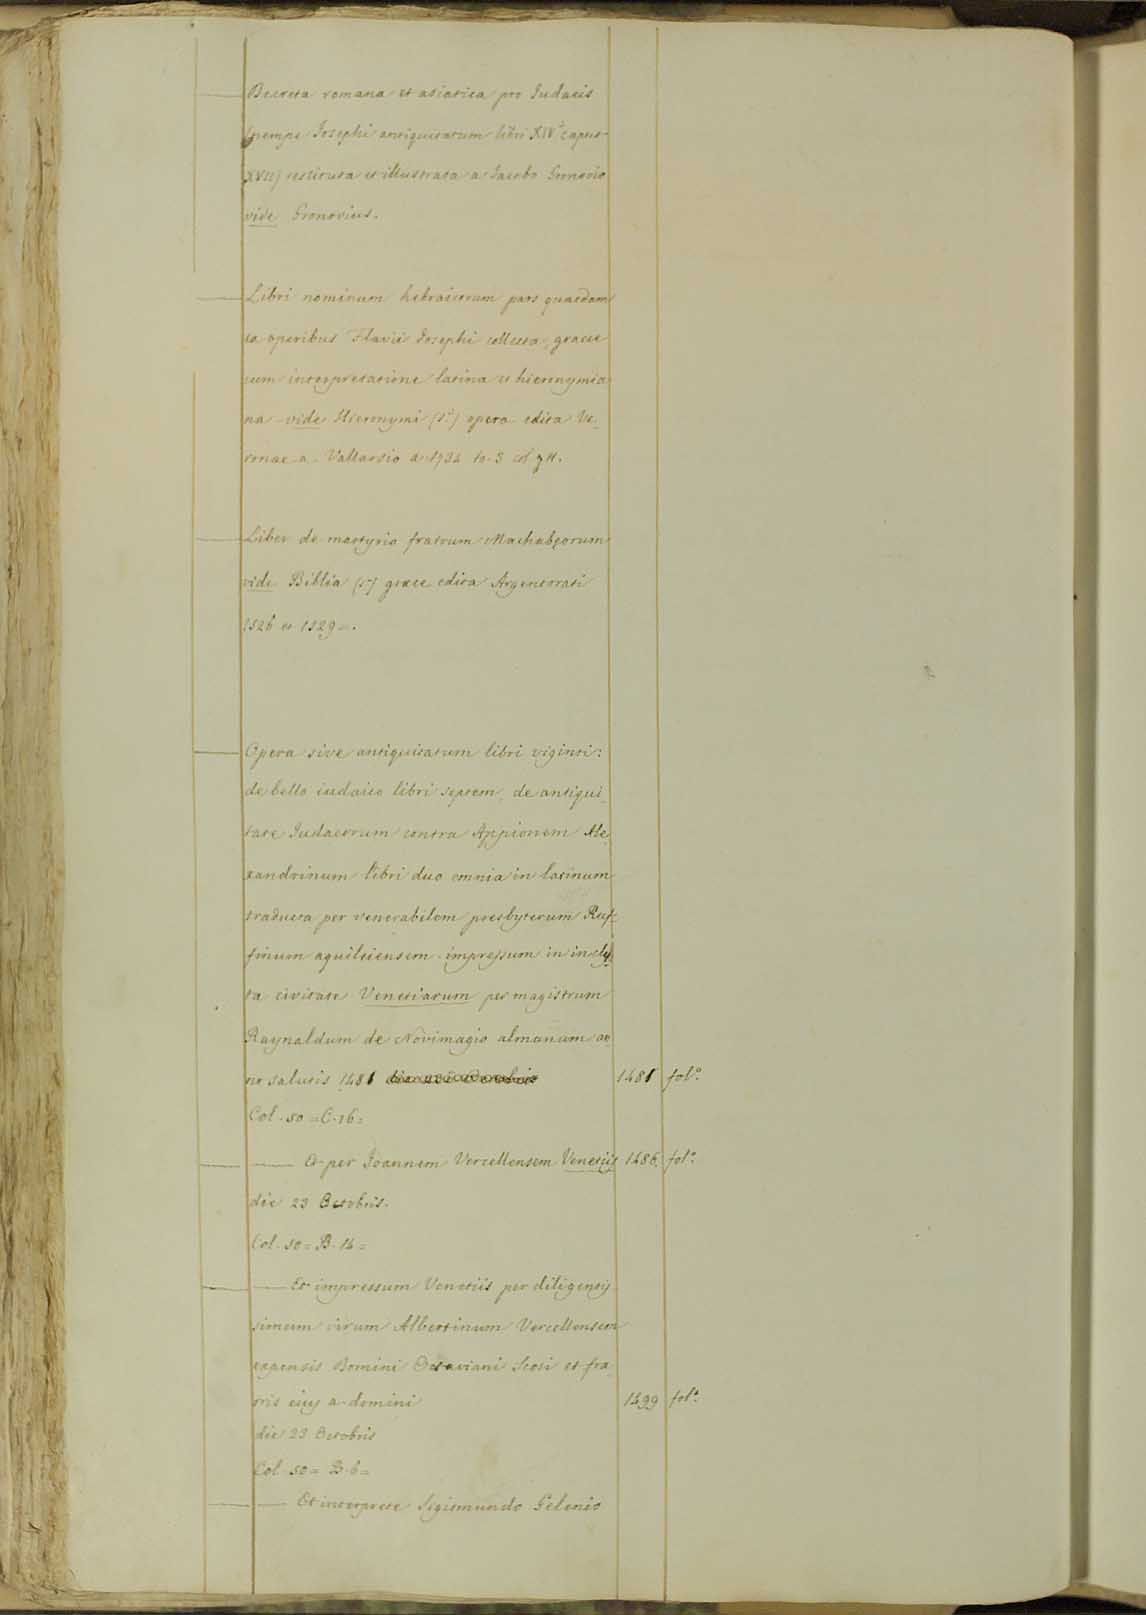 Decreta romana et asiatica pro Judaeis
(nempe Josephi antiquitatum libri XIVi caput
XVII) restituta et illustrata a Jacobo Gronovio
vide Gronovius.
Libri nominum hebraicorum pars quaedam
ex operibus Flavii Josephi collecta, graece
cum interpretatione latina et hieronymia
na - vide Hieronymi (Sti) opera edita Ve_
ronae a Vallarsio a. 1734 to. 3 col
Liber de martyrio fratrum Machabęorum
vide Biblia (Sa) graece edita Argentorati
1526 et 1529 =.
Opera sive antiquitatum libri viginti:
de bello iudaico libri septem, de antiqui_
tate Judaeorum contra Appionem Ale_
xandrinum libri duo omnia in latinum
traducta per venerabilem presbyterum Ruf_
finum aquileiensem. impressum in incly_
ta civitate Venetiarum per magistrum
Raynaldum de Novimagio almanum an
no salutis 1481 1481 folo.
Col. 50 = C. 16 =
Et per Joannem Vercellensem Venetijs 1486. folo.
die 23 Octobris.
Col. 50 = B. 14 =
Et impressum Venetiis per diligentis
simum virum Albertinum Vercellensem
expensis Domini Octaviani Scoti et fra_
tris eius a. domini 1499 folo.
die 23 Octobris
Col. 50 = B. 6 =
Et interprete Sigismundo Gelenio